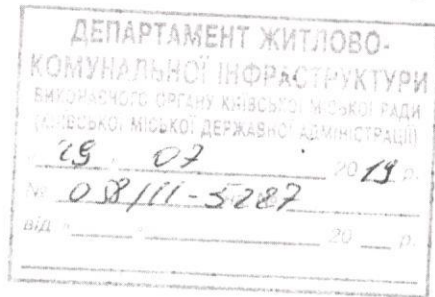 ДЕПАРТАМЕНТ ЖИТЛОВО-
КОМУНАЛЬНОЇ ІНФРАСТРУКТУРИ
ВИКОНАВЧОГО ОРГАНУ КИЇВСЬКОЇ МІСЬКОЇ РАДИ
(КИЇВСЬКОЇ МІСЬКОЇ ДЕРЖАВНОЇ АДМІНІСТРАЦІЇ)
" 29 " 07 2019 р.
№ 058/11-5287
від " " 20 р.